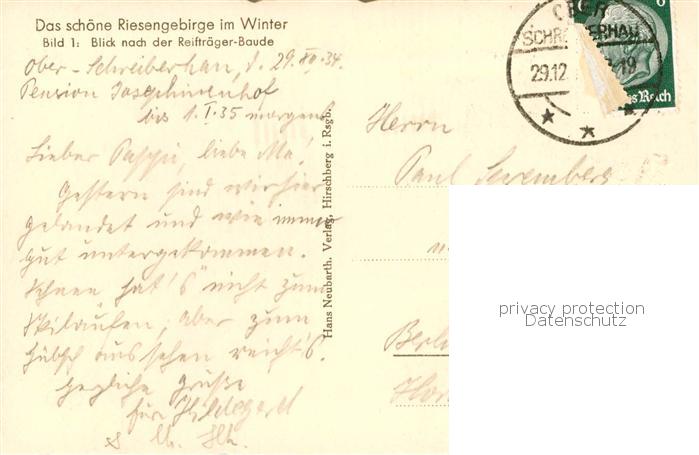 Das schöne Riesengebirge im Winter
Bild 1: Blick nach der Reifträger-Baude
Ober-Schreiberhau, d. 29.XII.34.
Pension Josephinenhof
bis 1.I.35 morgens
Lieber Pappi, liebe Ma!
Gestern sind wir hier
gelandet und wie immer
gut untergekommen.
Schnee "hat's" nicht zum
Skilaufen, aber zum
hübsch aussehen reicht's.
Herzliche Grüße
für Hildegard
Hans Neubarth. Verlag, Hirschberg i. Rsgb.
OBER
SCHR ERHAU
29.12 19
6
es Reich
Herrn
Paul
Berl
privacy protection
Datenschutz